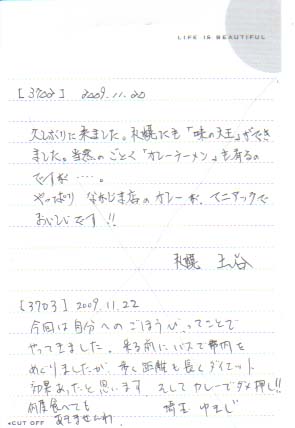 LIFE IS BEAUTIFUL
[3702] 2009.11.20
久しぶりに来ました。札幌にも「味の大王」ができ
ました。当然のごとく「カレーラーメン」も有るの
ですが…。
やっぱり なかじま店のカレーが、マニアックで
おいしいです!!
札幌 玉谷
[3703] 2009.11.22
今回は自分へのごほうびってことで
やってきました。来る前にバスで市内を
めぐりましたが 歩く距離も長くダイエット
効果あったと思います。そしてカレーでダメ押し!!
何度食べても 埼玉
あきませんわ
CUT OFF